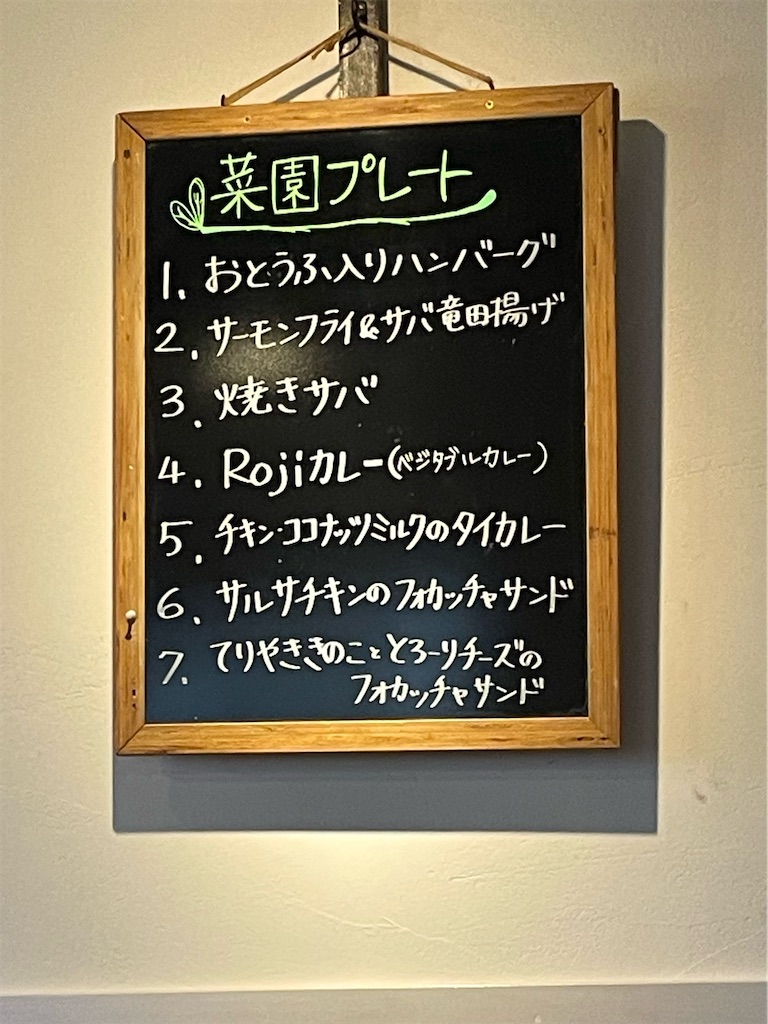 菜園プレート
1. おとうふ入りハンバーグ
2. サーモンフライ&サバ竜田揚げ
3. 焼きサバ
4. Rojiカレー(ベジタブルカレー)
5. チキン・ココナッツミルクのタイカレー
6. サルサチキンのフォカッチャサンド
7. てりやききのこととろーりチーズの
フォカッチャサンド